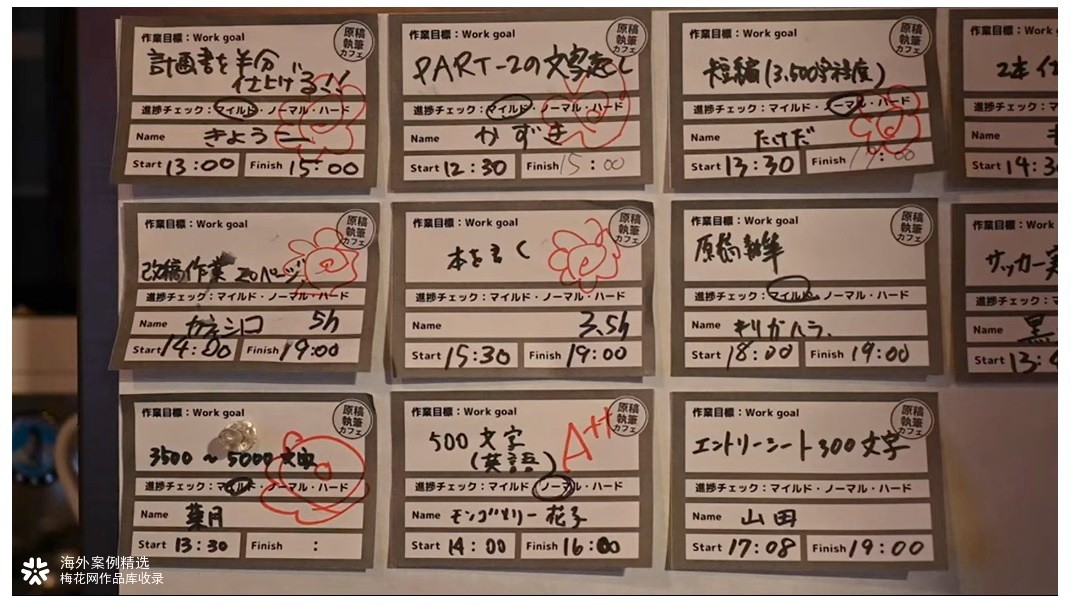 作業目標：Work goal
原稿執筆カフェ
計画書を半分
仕上げる!!
進捗チェック：マイルド・ノーマル・ハード
Name きょうこ
Start 13:00 Finish 15:00
作業目標：Work goal
原稿執筆カフェ
PART-2の文字起し
進捗チェック：マイルド・ノーマル・ハード
Name かずき
Start 12:30 Finish 15:00
作業目標：Work goal
原稿執筆カフェ
短編(3,500字程度)
進捗チェック：マイルド・ノーマル・ハード
Name たけだ
Start 13:30 Finish :00
作業目標：Work goal
2本
進捗チェック：マ
Name
Start 14:3
作業目標：Work goal
原稿執筆カフェ
改稿作業 20ページ
進捗チェック：マイルド・ノーマル・ハード
Name カネシロ 5h
Start 14:00 Finish 19:00
作業目標：Work goal
原稿執筆カフェ
本を書く
進捗チェック：マイルド・ノーマル・ハード
Name 3.5h
Start 15:30 Finish 19:00
作業目標：Work goal
原稿執筆カフェ
原稿執筆
進捗チェック：マイルド・ノーマル・ハード
Name キリガハラ.
Start 18:00 Finish 19:00
作業目標：Work goal
サッカー実
進捗チェック：マ
Name 黒
Start 13:
作業目標：Work goal
原稿執筆カフェ
3500～5000文字
進捗チェック：マイルド・ノーマル・ハード
Name 葉月
Start 13:30 Finish :
作業目標：Work goal
原稿執筆カフェ
500文字
(英語)
A++
進捗チェック：マイルド・ノーマル・ハード
Name モンゴメリー花子
Start 14:00 Finish 16:00
作業目標：Work goal
原稿執筆カフェ
エントリーシート300文字
進捗チェック：マイルド・ノーマル・ハード
Name 山田
Start 17:08 Finish 19:00
海外案例精选
梅花网作品库收录